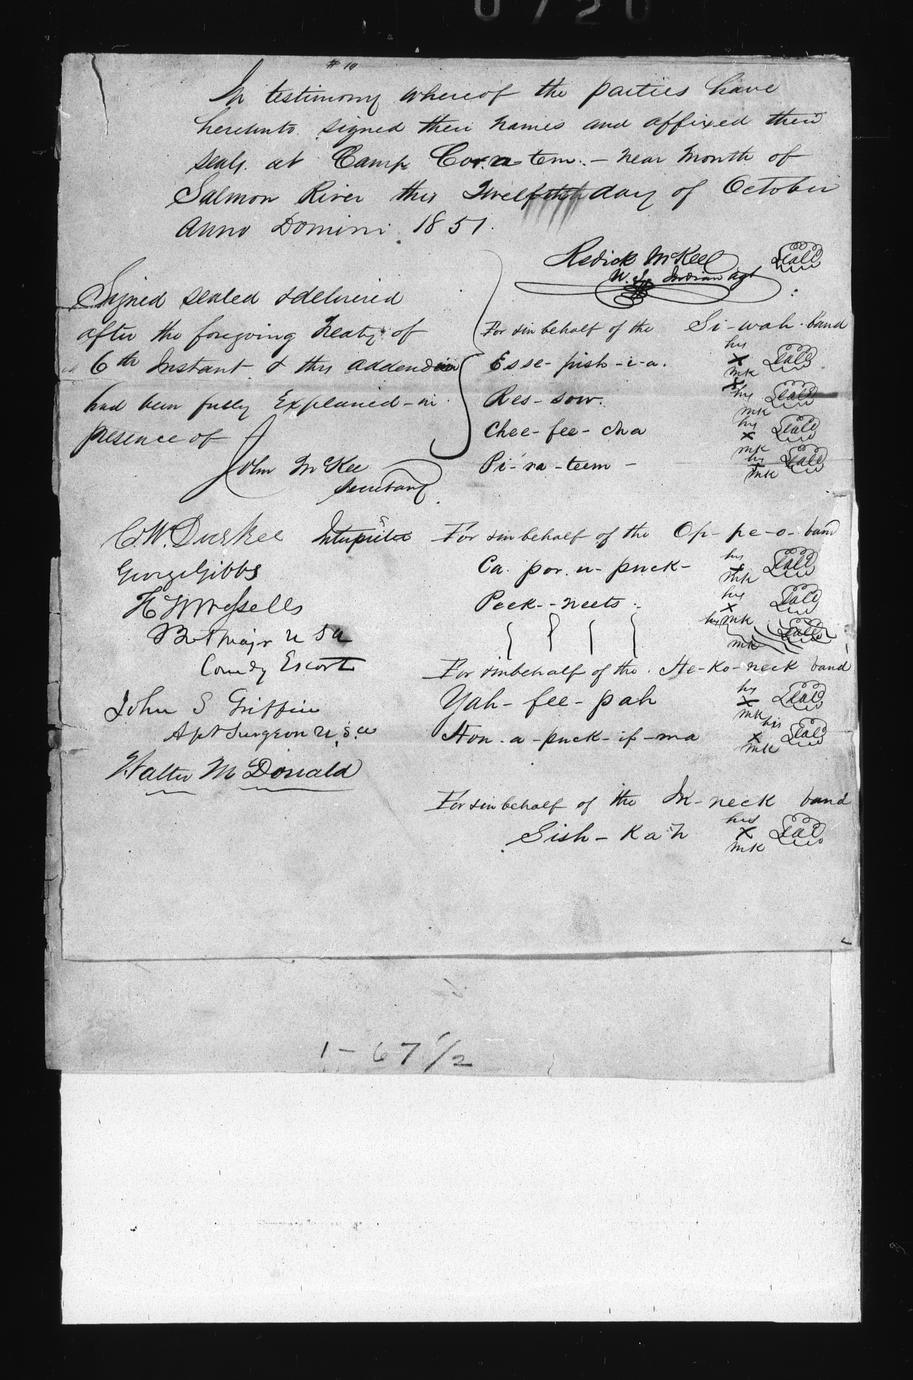 0720
# 10
In testimony whereof the parties have
hereunto signed their names and affixed their
seals at Camp Cor-a-tem. - near mouth of
Salmon River this Twelfth day of October
Anno Domini 1851.
Redick McKee Seal
U. S. Indian Agt
Signed sealed & delivered
after the foregoing Treaty of
6th Instant & this addendum
had been fully Explained - in
presence of
John McKee
Secretary
C. W. Durkee Interpreter
George Gibbs
H W Wessells
Bvt Major U S A
Comdg Escort
John S Griffin
Asst Surgeon U. S. A
Walter McDonald
For & in behalf of the Si-wah-band
Esse-pish-i-a. his x mk Seal
Res-sow. his x mk Seal
Chee-fee-cha his x mk Seal
Pi-ra-teem - his x mk Seal
For & in behalf of the Op-pe-o-band
Ca-por-u-puck- his x mk Seal
Peek-neets. his x mk Seal
his mk Seal
For & in behalf of the He-ko-neck band
Yah-fee-pah his x mk Seal
Hon-a-puck-if-ma his x mk Seal
For & in behalf of the In-neck band
Sish-kah his x mk Seal
1-67 1/2